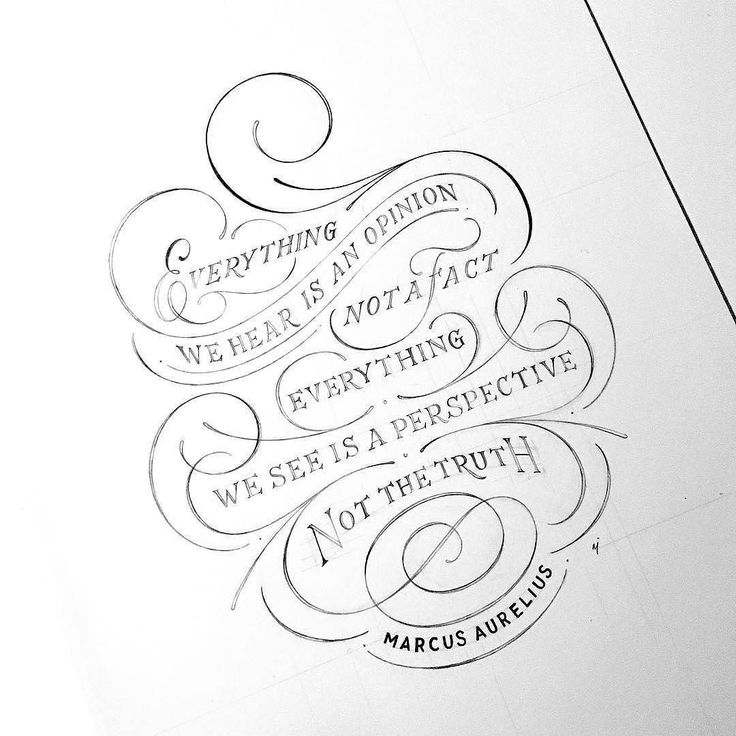 EVERYTHING
WE HEAR IS AN OPINION
NOT A FACT
EVERYTHING
WE SEE IS A PERSPECTIVE
NOT THE TRUTH
MARCUS AURELIUS